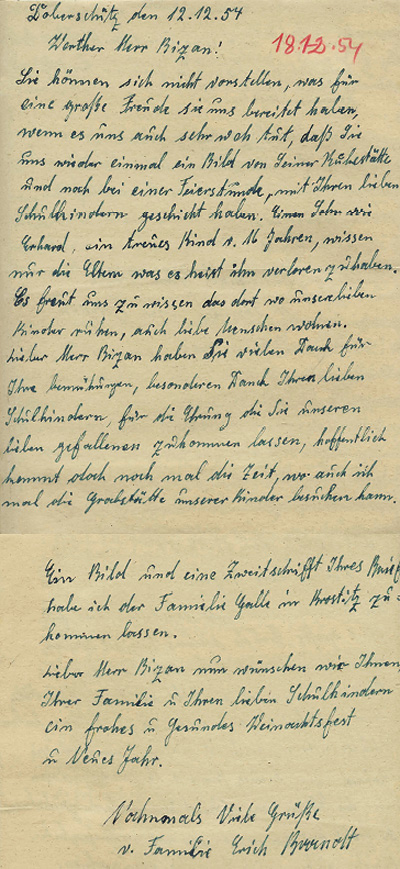 Doberschütz den 12.12.54
Werther Herr Bizan!
18.12.54
Sie können sich nicht vorstellen, was für
eine große Freude sie uns bereitet haben,
wenn es uns auch sehr weh tut, daß Sie
uns wieder einmal ein Bild von Seiner Ruhestätte
und noch bei einer Feierstunde, mit Ihren lieben
Schulkindern geschickt haben. Einen Sohn wie
Erhard, ein treues Kind v. 16 Jahren, wissen
nur die Eltern was es heist ihn verloren zu haben.
Es freut uns zu wissen das dort wo unsere lieben
Kinder ruhen, auch liebe Menschen wohnen.
Lieber Herr Bizan haben Sie vielen Dank für
Ihre bemühungen, besonderen Dank Ihren lieben
Schulkindern, für die Ehrung die Sie unseren
lieben gefallenen zukommen lassen, hoffentlich
kommt doch noch mal die Zeit, wo auch ich
mal die Grabstätte unserer Kinder besuchen kann.
Ein Bild und eine Zweitschrifft Ihres Briefes
habe ich der Familie Galle in Krostitz zu-
kommen lassen.
Lieber Herr Bizan nun wünschen wir Ihnen,
Ihrer Familie u Ihren lieben Schulkindern
ein frohes u Gesundes Weinachtsfest
u Neues Jahr.
Nochmals Viele Grüße
v. Familie Erich